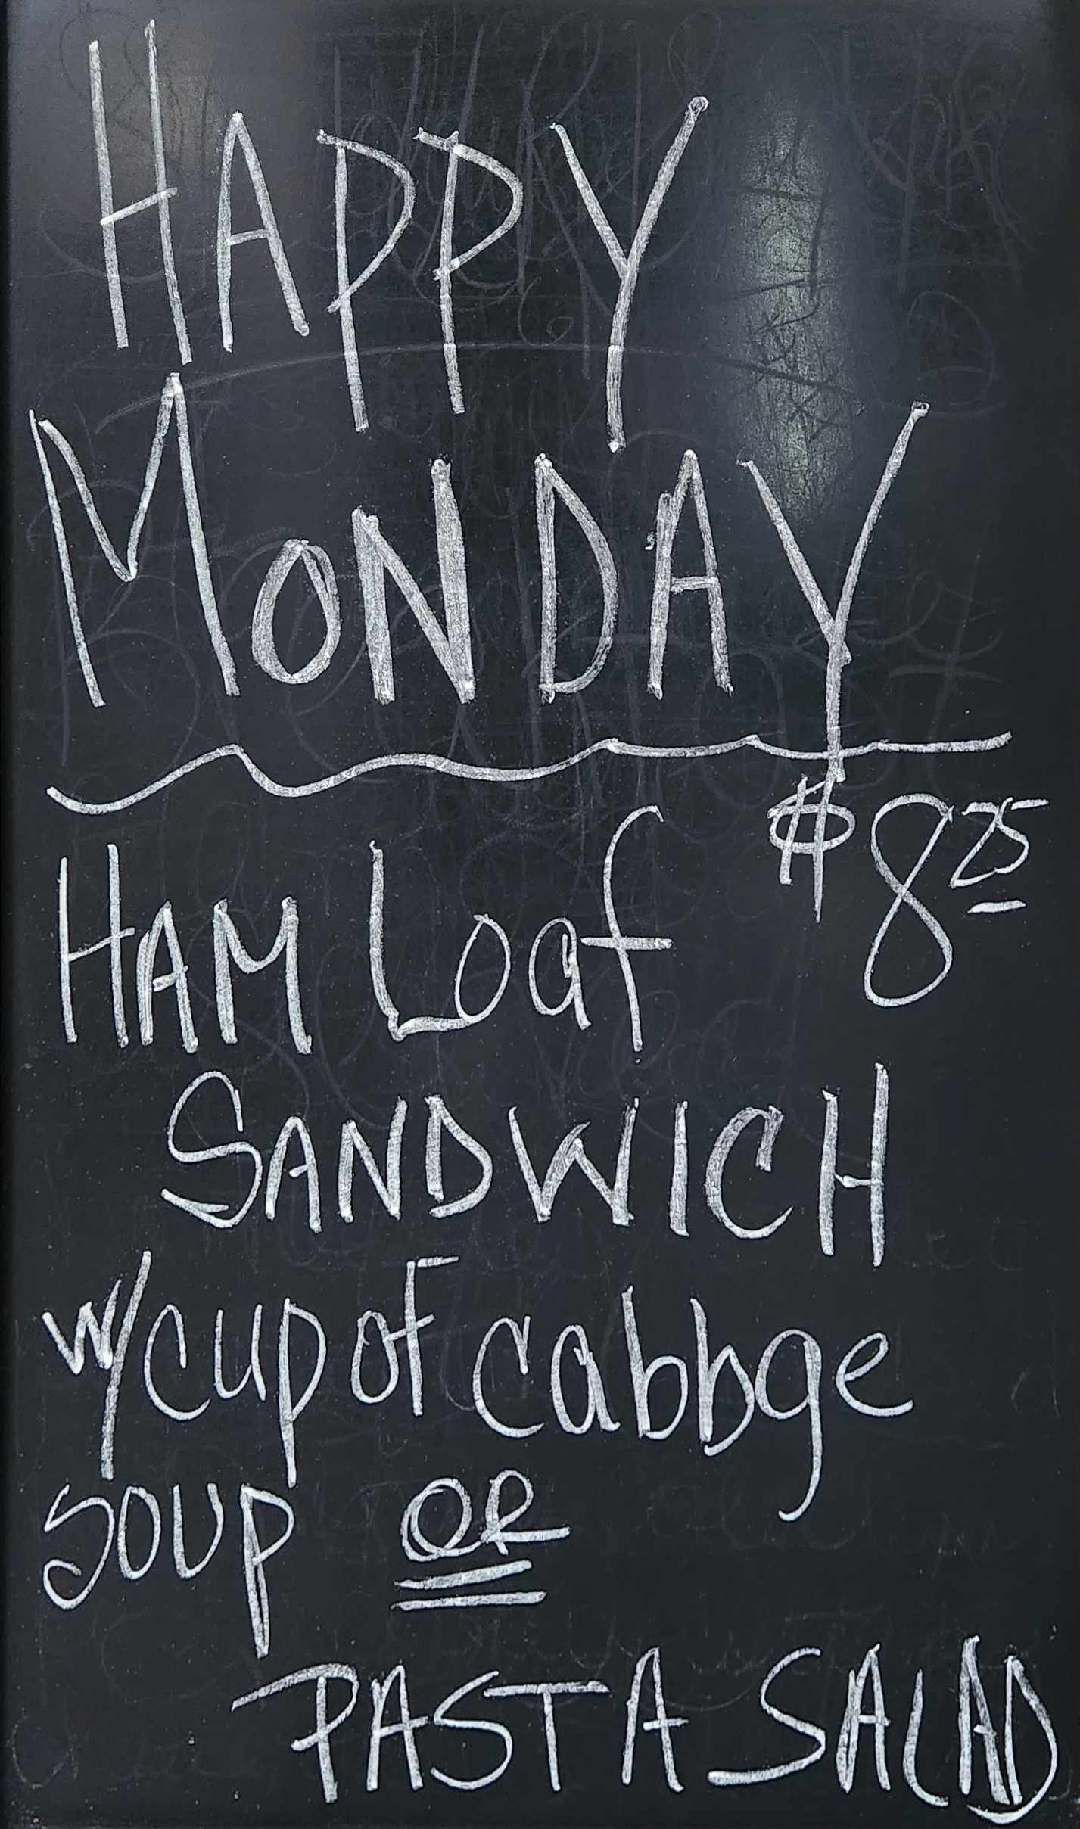 HAPPY
MONDAY
HAM Loaf $8 25
SANDWICH
w/cup of cabbge
soup OR
PASTA SALAD